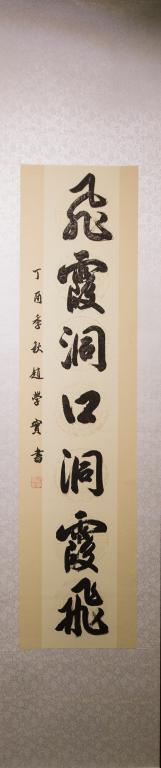 飛霞洞口洞霞飛
丁酉季秋趙學寶書